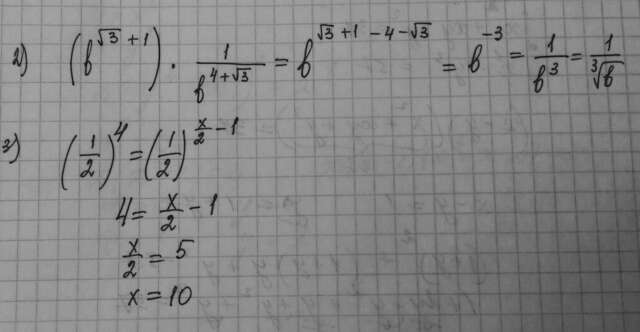 2) (b^{√3 + 1}) · 1/b^{4+√3} = b^{√3 + 1 - 4 - √3} = b^{-3} = 1/b^3 = 1/∛b
3) (1/2)^4 = (1/2)^{x/2 - 1}
4 = x/2 - 1
x/2 = 5
x = 10